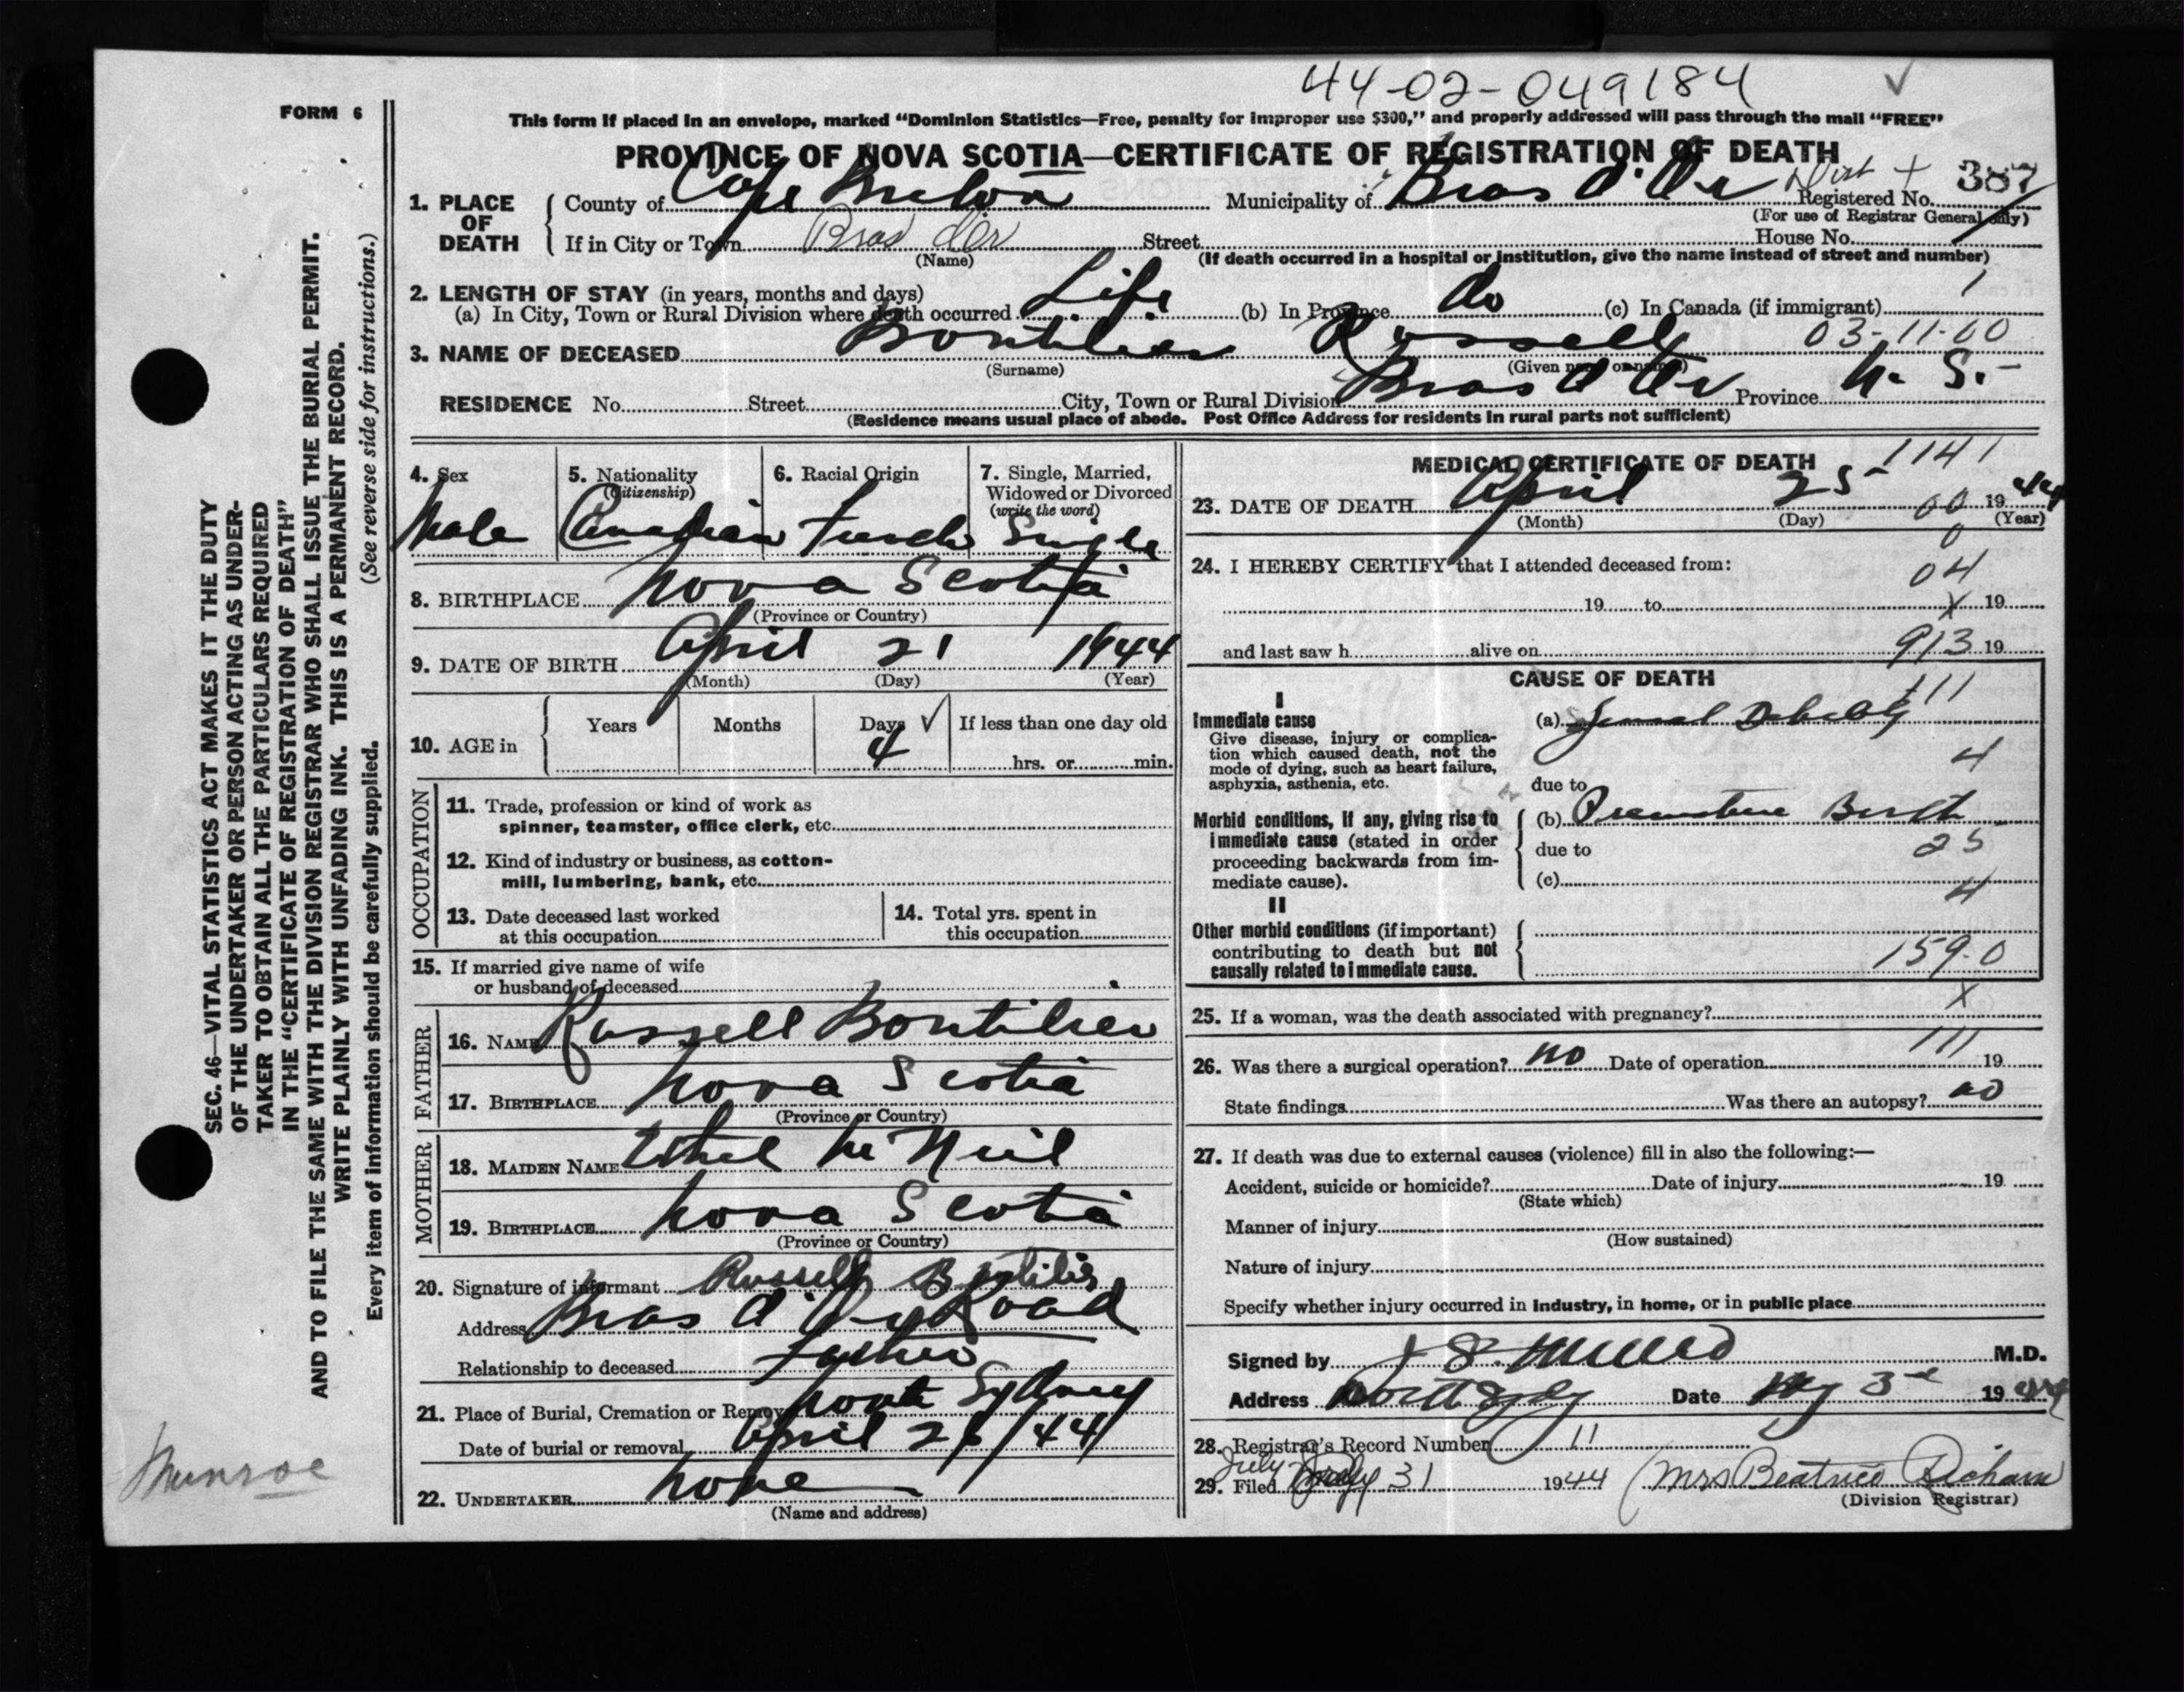 44-02-049184
FORM 6
This form if placed in an envelope, marked "Dominion Statistics—Free, penalty for improper use $300," and properly addressed will pass through the mail "FREE"
PROVINCE OF NOVA SCOTIA—CERTIFICATE OF REGISTRATION OF DEATH
1. PLACE OF DEATH
County of Cape Breton Municipality of Bras d'Or Registered No. 387
(For use of Registrar General only)
If in City or Town Bras d'Or Street House No.
(Name) (If death occurred in a hospital or institution, give the name instead of street and number)
2. LENGTH OF STAY (in years, months and days)
(a) In City, Town or Rural Division where death occurred Life (b) In Province do (c) In Canada (if immigrant) 1
3. NAME OF DECEASED Boutilier Russell 03-11-00
(Surname) (Given name or names)
RESIDENCE No. Street City, Town or Rural Division Bras d'Or Province N. S.
(Residence means usual place of abode. Post Office Address for residents in rural parts not sufficient)
4. Sex
Male
5. Nationality
(Citizenship)
Canadian
6. Racial Origin
French
7. Single, Married,
Widowed or Divorced
(write the word)
Single
8. BIRTHPLACE Nova Scotia
(Province or Country)
9. DATE OF BIRTH April 21 1944
(Month) (Day) (Year)
10. AGE in
Years Months Days If less than one day old
4 hrs. or min.
OCCUPATION
11. Trade, profession or kind of work as
spinner, teamster, office clerk, etc.
12. Kind of industry or business, as cotton-
mill, lumbering, bank, etc.
13. Date deceased last worked
at this occupation
14. Total yrs. spent in
this occupation
15. If married give name of wife
or husband of deceased
FATHER
16. NAME Russell Boutilier
17. BIRTHPLACE Nova Scotia
(Province or Country)
MOTHER
18. MAIDEN NAME Ethel McNeil
19. BIRTHPLACE Nova Scotia
(Province or Country)
20. Signature of informant Russell Boutilier
Address Bras d'Or Road
Relationship to deceased Father
21. Place of Burial, Cremation or Removal North Sydney
Date of burial or removal April 26/44
22. UNDERTAKER None
(Name and address)
MEDICAL CERTIFICATE OF DEATH 1141
23. DATE OF DEATH April 25 00 1944
(Month) (Day) (Year)
0
24. I HEREBY CERTIFY that I attended deceased from:
04
19 to X 19
and last saw h alive on 913 19
CAUSE OF DEATH
I
Immediate cause
Give disease, injury or complica-
tion which caused death, not the
mode of dying, such as heart failure,
asphyxia, asthenia, etc.
(a) General Debility 111
4
due to
Morbid conditions, if any, giving rise to
immediate cause (stated in order
proceeding backwards from im-
mediate cause).
(b) Premature Birth
due to 25
(c) 4
II
Other morbid conditions (if important)
contributing to death but not
causally related to immediate cause.
159.0
25. If a woman, was the death associated with pregnancy? X
26. Was there a surgical operation? no Date of operation 111 19
State findings Was there an autopsy? no
27. If death was due to external causes (violence) fill in also the following:—
Accident, suicide or homicide? Date of injury 19
(State which)
Manner of injury
(How sustained)
Nature of injury
Specify whether injury occurred in industry, in home, or in public place
Signed by M.D.
Address Date May 3rd 1944
28. Registrar's Record Number 11
29. Filed July 31 1944 Mrs Beatrice
(Division Registrar)
SEC. 46—VITAL STATISTICS ACT MAKES IT THE DUTY
OF THE UNDERTAKER OR PERSON ACTING AS UNDER-
TAKER TO OBTAIN ALL THE PARTICULARS REQUIRED
IN THE "CERTIFICATE OF REGISTRATION OF DEATH"
AND TO FILE THE SAME WITH THE DIVISION REGISTRAR WHO SHALL ISSUE THE BURIAL PERMIT.
WRITE PLAINLY WITH UNFADING INK. THIS IS A PERMANENT RECORD.
(See reverse side for instructions.)
Every item of information should be carefully supplied.
Munroe